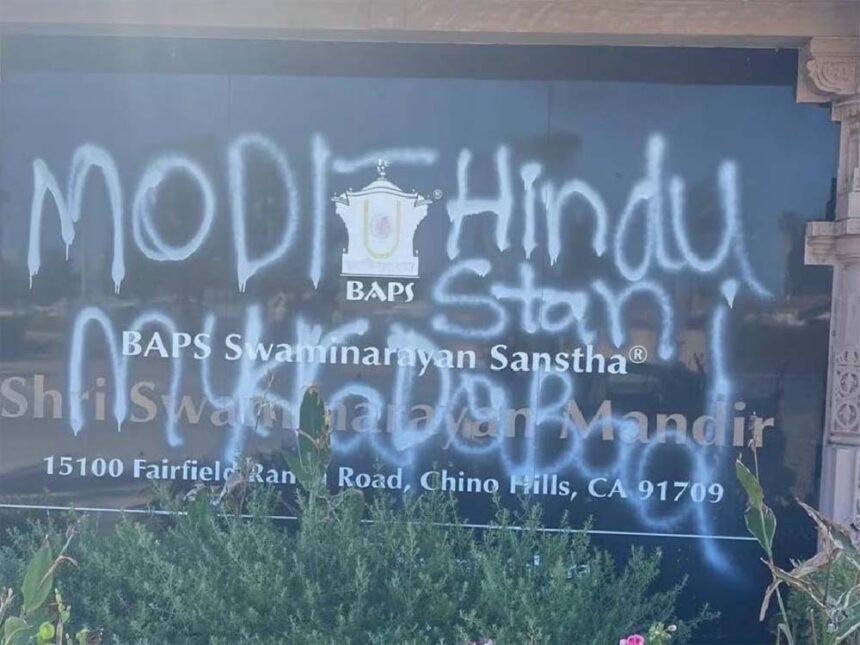 MODI - Hindu
®
BAPS
Stan
BAPS Swaminarayan Sanstha®
Shri Swaminarayan Mandir
15100 Fairfield Ranch Road, Chino Hills, CA 91709